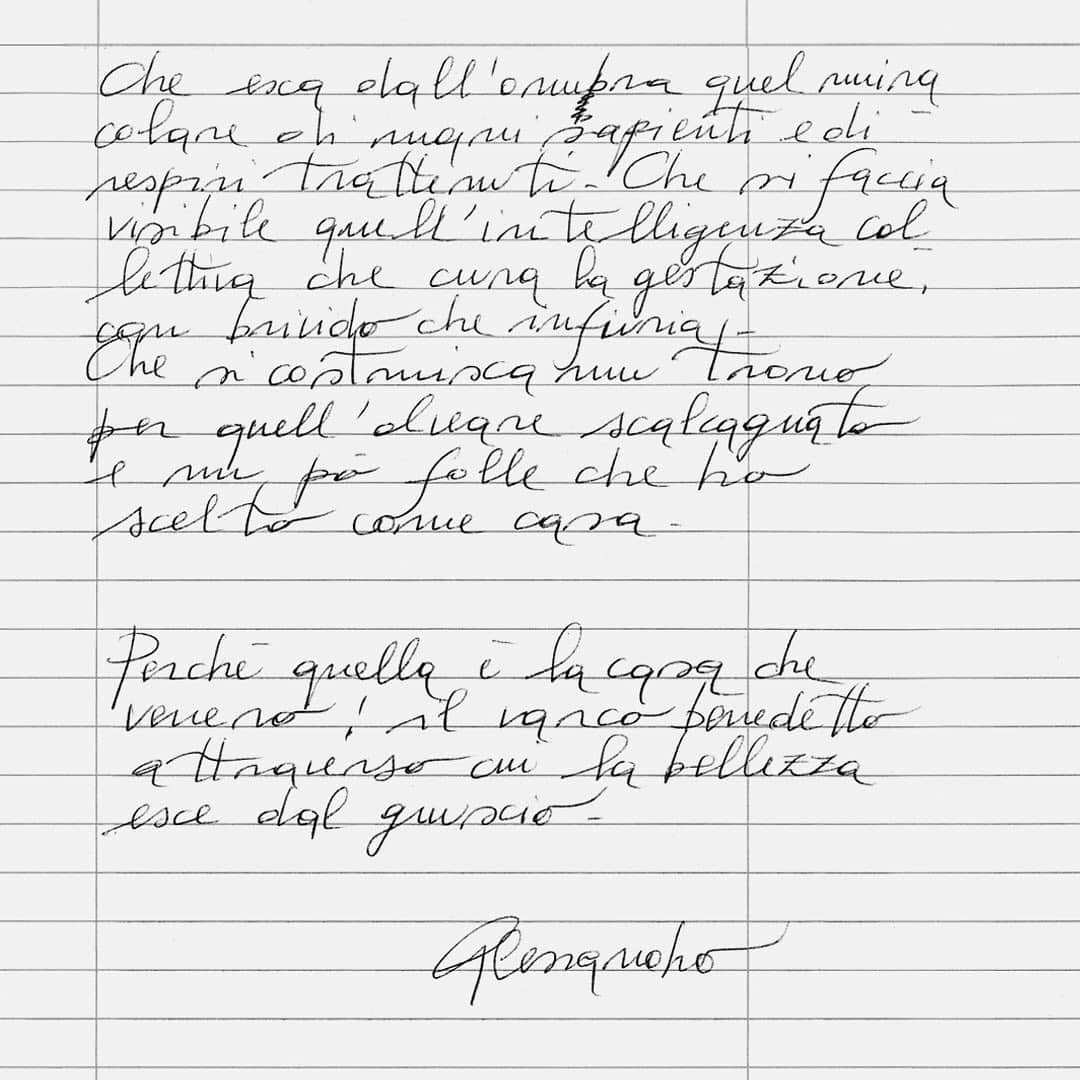 Che esca dall'ombra quel mira
colare di mani sapienti e di
respiri trattenuti. Che si faccia
visibile quell'intelligenza col
lettiva che cura la gestazione,
ogni brivido che infuria,
Che si costruisca un trono
per quell'alveare scalcagnato
e un pò folle che ho
scelto come casa.
Perché quella è la casa che
venero, il varco benedetto
attraverso cui la bellezza
esce dal guscio.
Alessandro